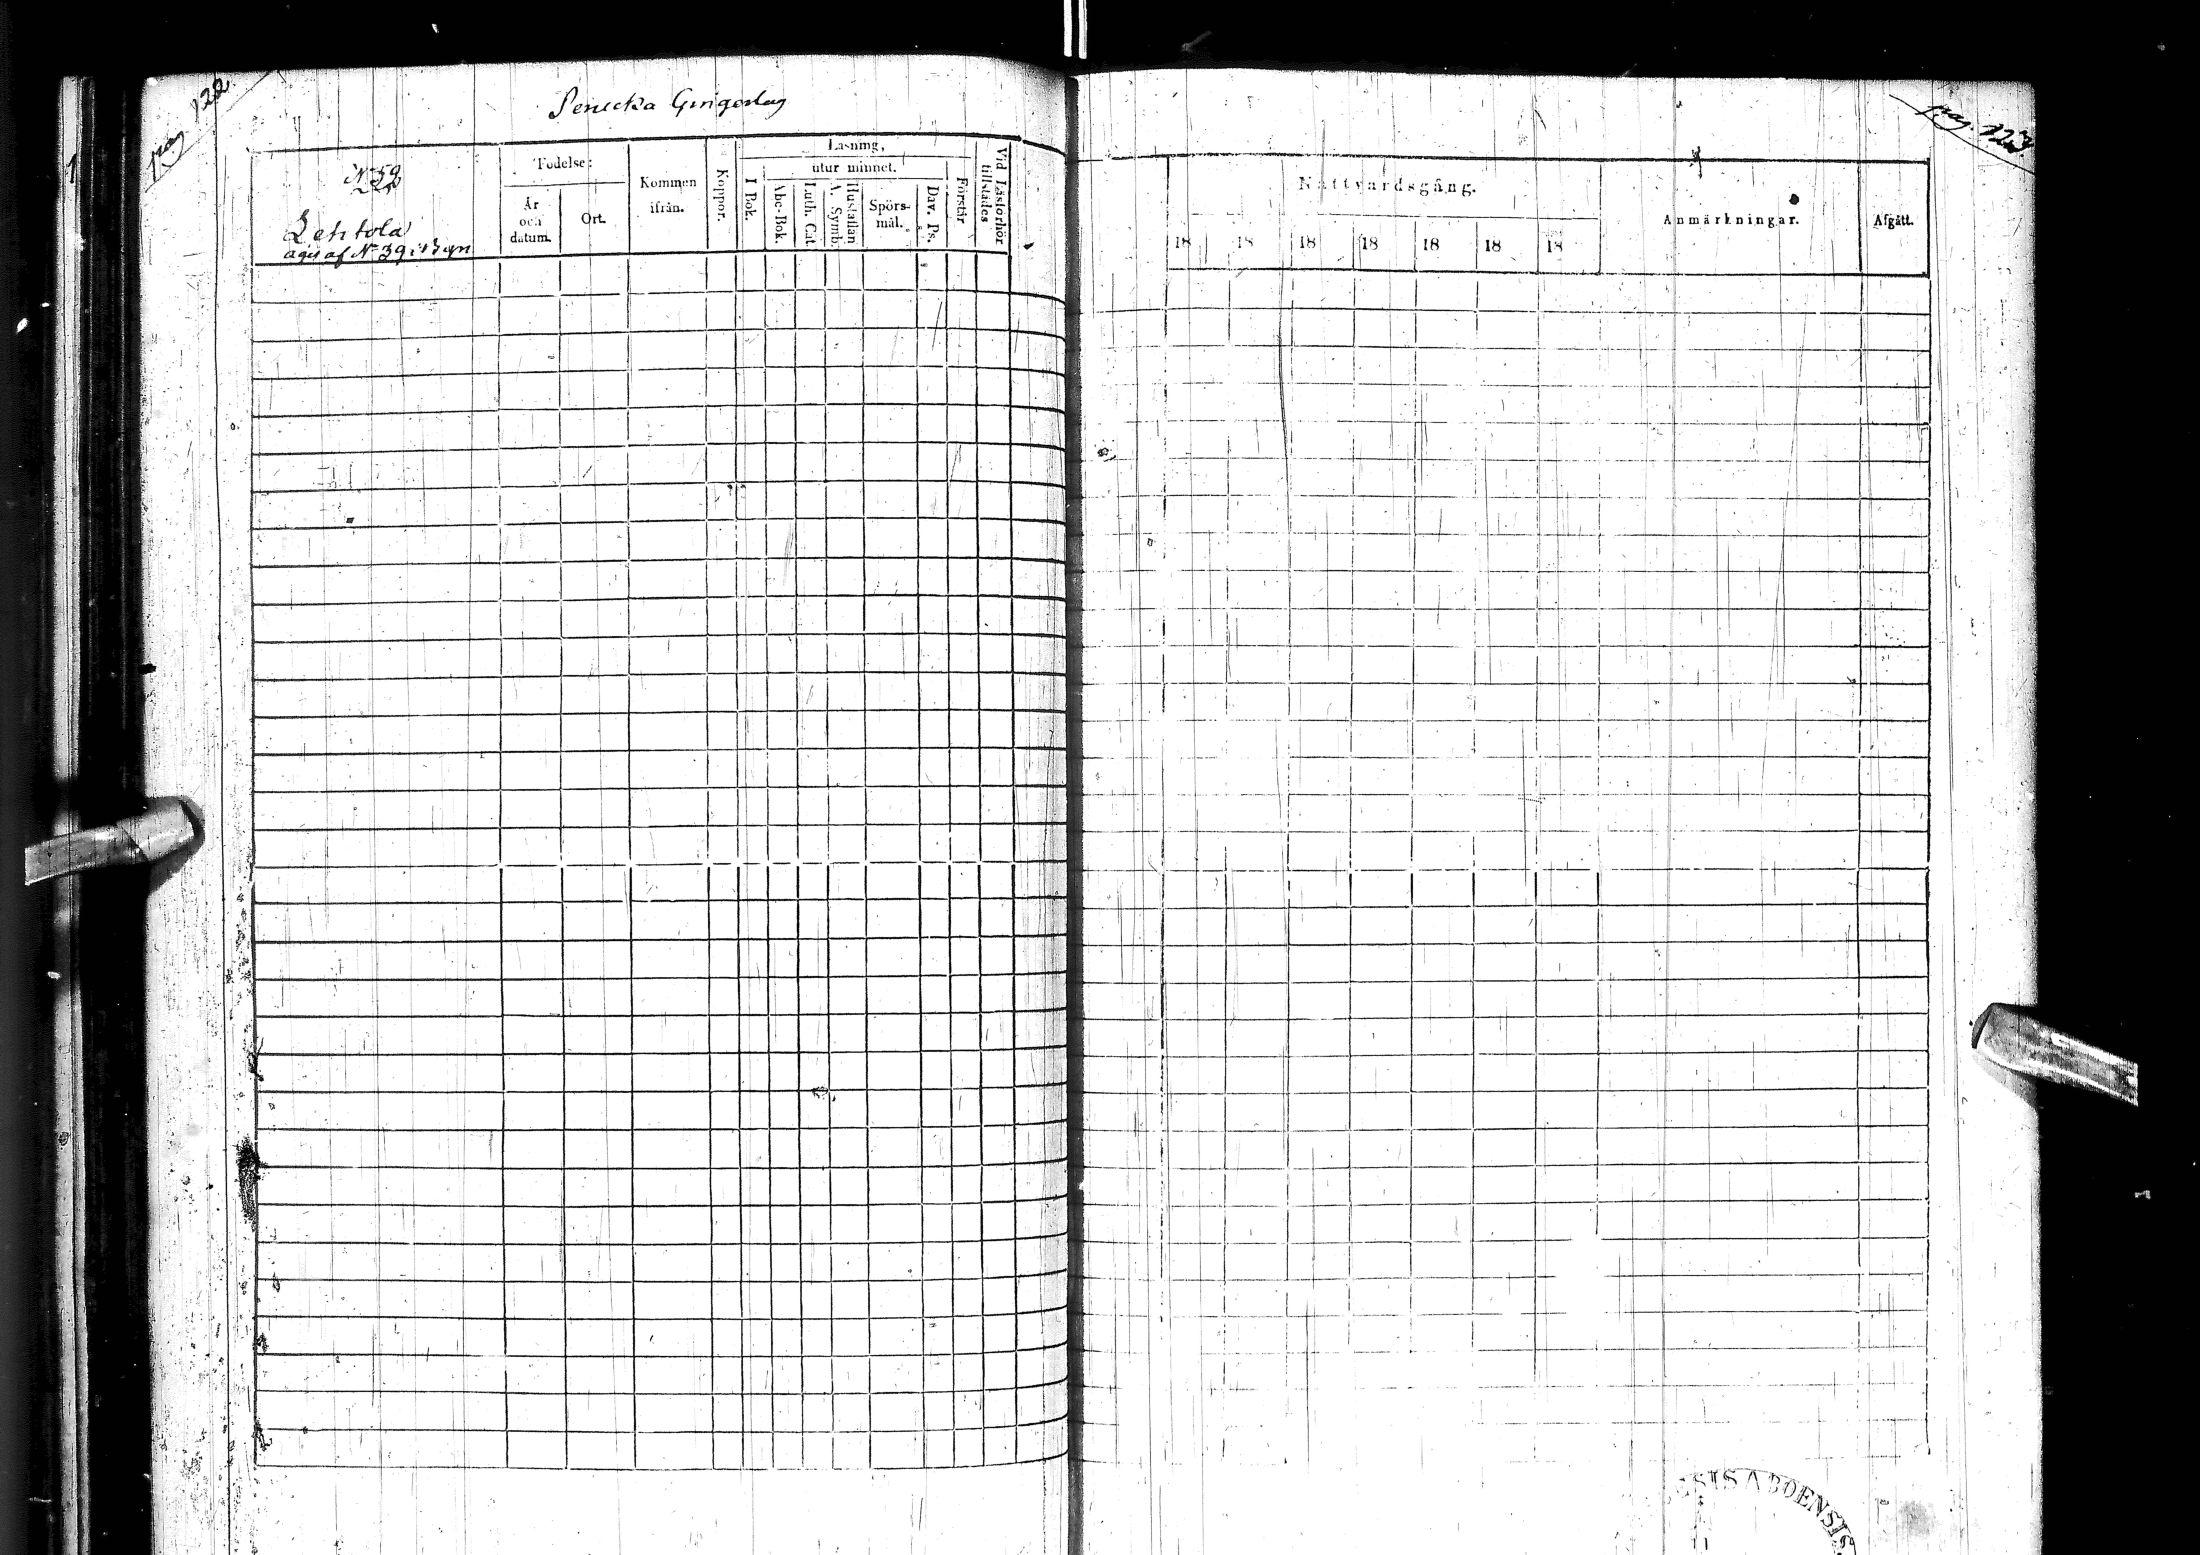 pag 122.
Gringorlag
N 59
Lehtola
äges af N 39 i Byn
Födelse:
År och datum.
Ort.
Kommen ifrån.
Koppor.
Läsning,
utur minnet.
I Bok.
Abc-Bok.
Luth. Cat.
A. Symb.
Hustaflan
Spörsmål.
Dav. Ps.
Förstår
Vid Läsförhör tillstädes
pag. 123.
Nattvardsgång.
18 18 18 18 18 18 18
Anmärkningar.
Afgått.
ESIS ABOENSIS